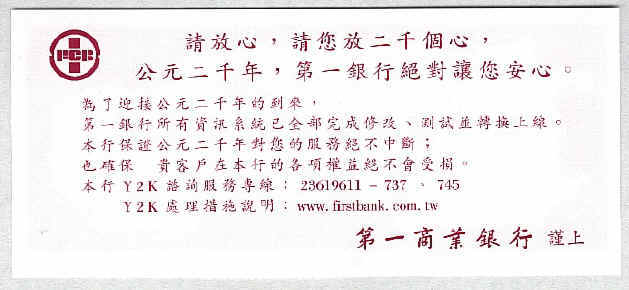 FCB
請放心，請您放二千個心，
公元二千年，第一銀行絕對讓您安心。
為了迎接公元二千年的到來，
第一銀行所有資訊系統已全部完成修改、測試並轉換上線。
本行保證公元二千年對您的服務絕不中斷；
也確保　貴客戶在本行的各項權益絕不會受損。
本行 Y2K 諮詢服務專線：23619611－737、745
Y2K 處理措施說明：www.firstbank.com.tw
第一商業銀行 謹上